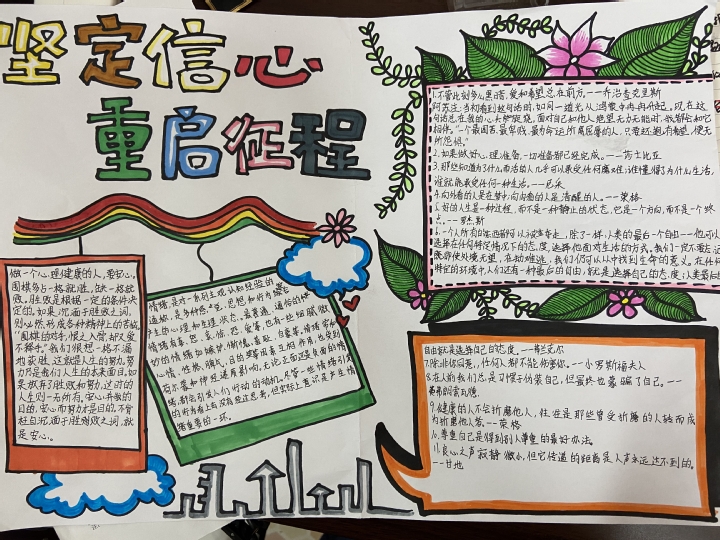 坚定信心
重启征程
做一个心理健康的人，要安心。
围棋多占一格就进，缺一格就
败，胜败是根据一定的条件决
定的。如果沉湎于胜败之词，
则必然形成各种精神上的苦恼。
"围棋的对手，恨之入骨，却又爱
不释手。"我们很想一格不漏
地获胜，这就是人生的努力。努
力乃是我们人生的本来面目。如
果放弃了胜败和努力，这时的
人生则一无所有。安心并我的
目的，安心而努力才是目的，不曾
枉自沉湎于胜败之词，就
是安心。
情绪，是对一系列主观认知经验的
通称，是多种感觉、思想和行为综合
产生的心理和生理状态。最普遍、通俗的
情绪有喜、怒、哀、惊、恐、爱等，也有一些细腻微
妙的情绪如嫉妒、惭愧、羞耻、自豪等。情绪常和
心情、性格、脾气、目的等因素互相作用，也受到
荷尔蒙和神经递质影响。无论正面还是负面的情
绪，都会引发人们行动的动机。尽管一些情绪引发
的行为看上去没有经过思考，但实际上意识是产生情
绪重要的一环。
1.不管此刻多么黑暗，爱和希望总在前方。——乔治查克里斯
阿苏庄:当初看到这句话时，如同一道光从鸿蒙中冉冉升起，现在这
句话总在我的心头萨绕，面对自己和他人绝望无力无能时，依靠给和它
相伴。"一个最困苦、最卑贱、最为命运所屈辱的人，只要还抱有希望，便无
所怨惧。"
2.如果做好心理准备，一切准备都已经完成。——莎士比亚
3.那些知道为了什么而活的人几乎可以承受任何怎么样，谁懂得了为什么生活，
谁就能承受任何一种生活。——尼采
4.向外看的人是在梦中，向内看的人是清醒的人。——荣格
5.好的人生是一种过程，而不是一种静止的状态，它是一个方向，而不是一个终
点。——罗杰斯
6.一个人所有的东西都可以被夺走，除了一样，人类的最后一个自由——他可以
选择在任何特定情况下的态度，选择他面对生活的方式。我们一定不能忘记
既即使处境无望，无助难逃，我们仍可以从中找到生命的意义。在任何
特定的环境中，人们还有一种最后的自由，就是选择自己的态度；人类最后
自由就是选择自己的态度。——弗兰克尔
7.除非你同意，任何人都不能伤害你。——小罗斯福夫人
8.在人前我们总是习惯于伪装自己，但最终也蒙骗了自己。——
弗弗朗索瓦德
9.健康的人不会折磨他人，往往是那些曾受折磨的人转而成
为折磨他人者。——荣格
10.尊重自己是得到别人尊重的最好办法。
11.良心之声寂静微小，但它传道的距离是人声永远达不到的。
——甘地